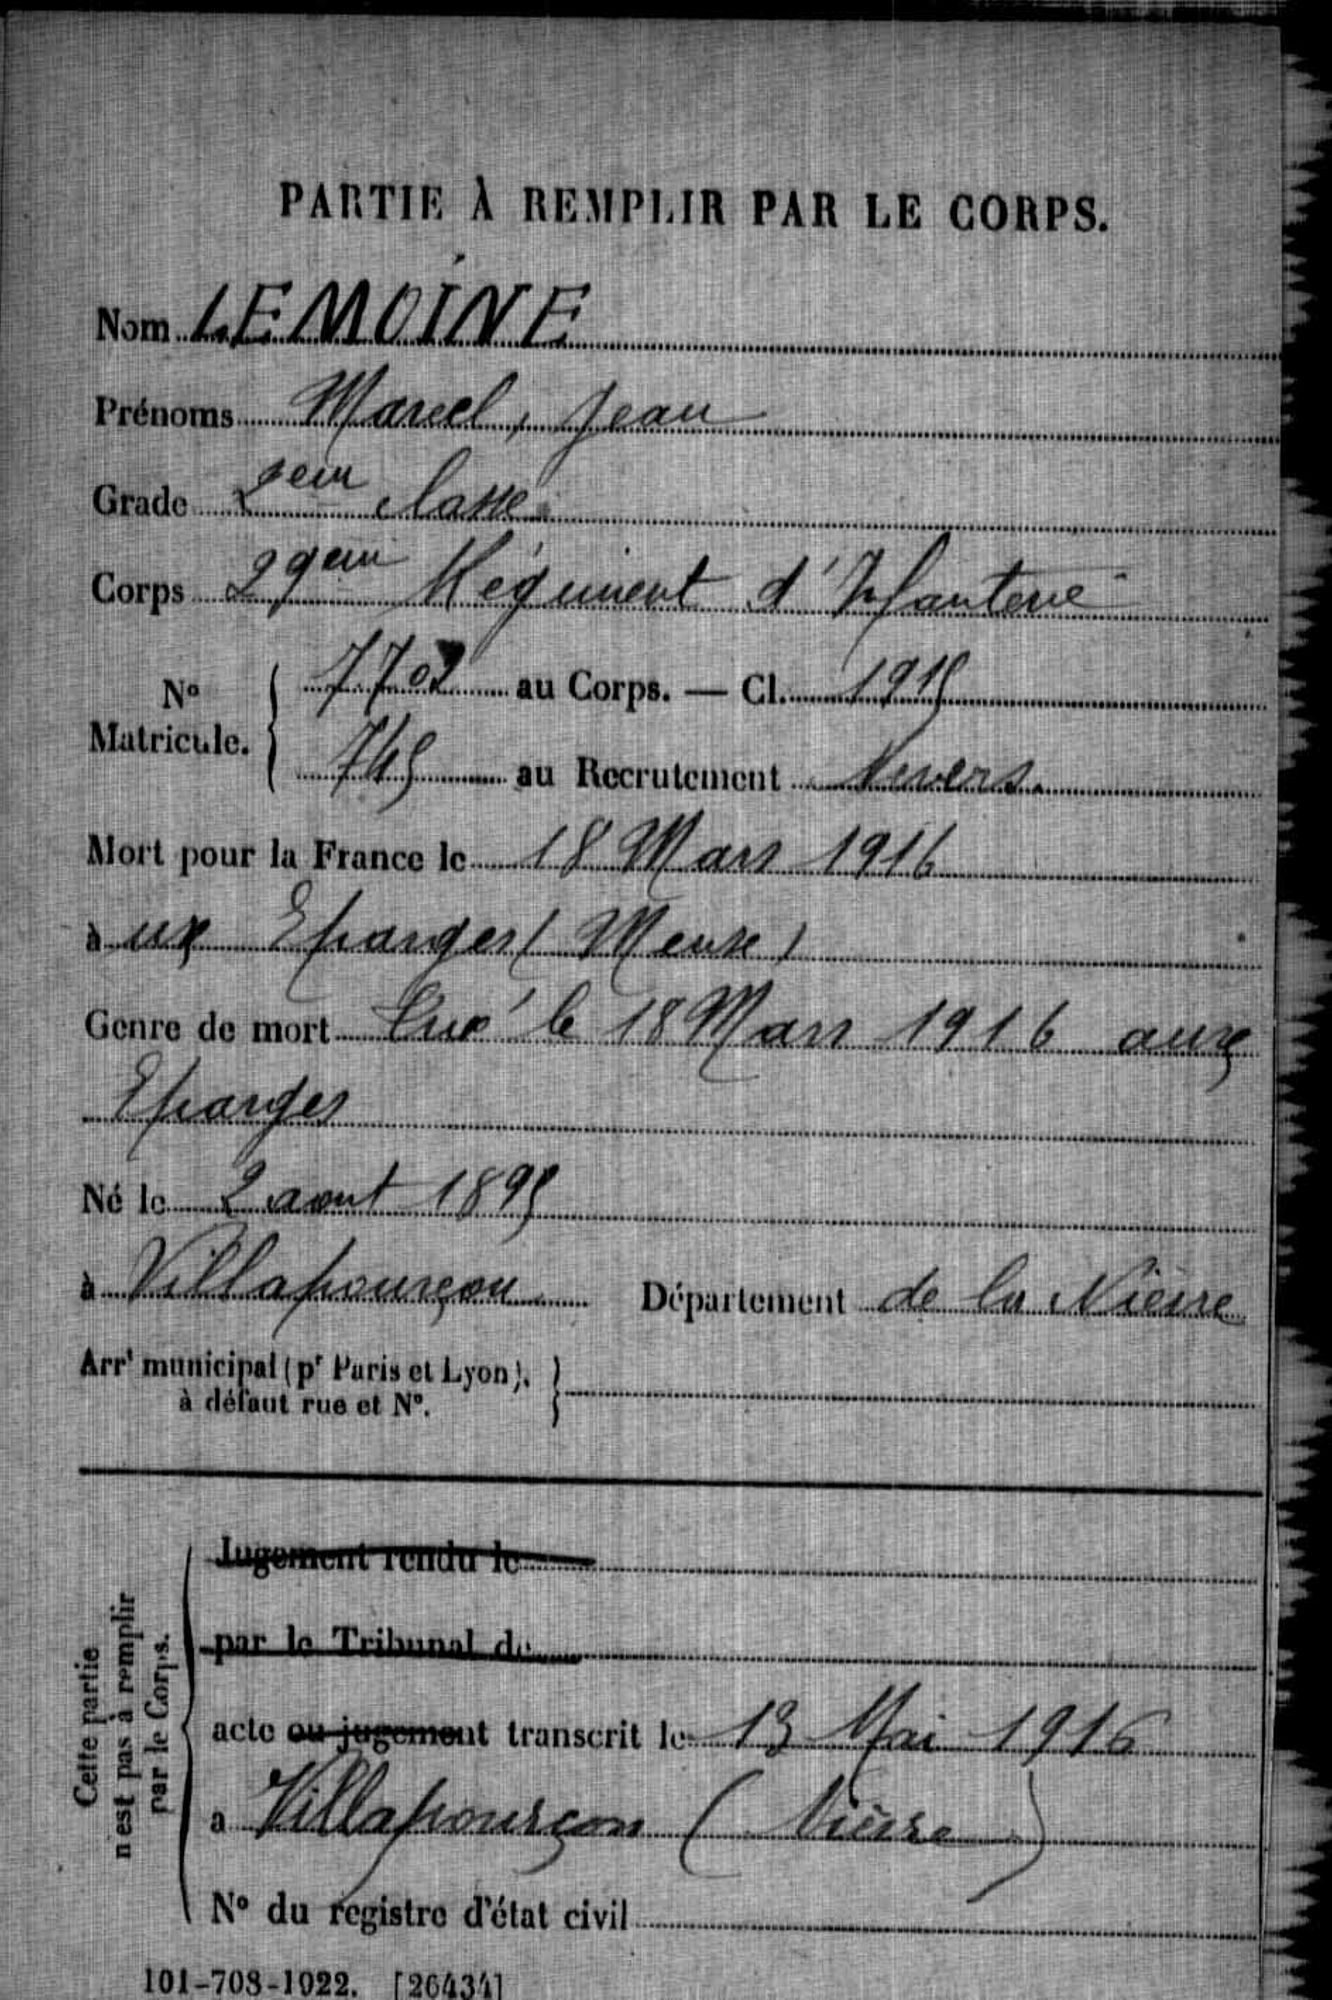 PARTIE À REMPLIR PAR LE CORPS.
Nom LEMOINE
Prénoms Marcel, Jean
Grade 2em classe
Corps 29em Régiment d'Infanterie
N° Matricule. { 7702 au Corps. — Cl. 1915
745 au Recrutement Nevers.
Mort pour la France le 18 Mars 1916
à ux Eparges (Meuse)
Genre de mort Tué le 18 Mars 1916 aux
Eparges
Né le 2 aout 1895
à Villapourçon Département de la Nièvre
Arrt municipal (pr Paris et Lyon), }
à défaut rue et N°.
Cette partie n'est pas à remplir par le Corps.
Jugement rendu le
par le Tribunal de
acte ou jugement transcrit le 13 Mai 1916
a Villapourçon (Nièvre)
N° du registre d'état civil
101-708-1922. [26434]